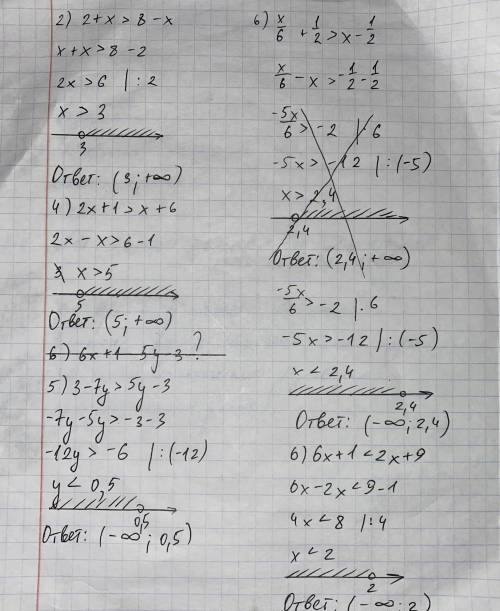 2) 2+x>8-x
x+x>8-2
2x>6 |:2
x>3
3
Ответ: (3;+∞)
4) 2x+1>x+6
2x-x>6-1
x>5
5
Ответ: (5;+∞)
6) 6x+1 5y-3 ?
5) 3-7y>5y-3
-7y-5y>-3-3
-12y>-6 |:(-12)
y<0,5
0,5
Ответ: (-∞;0,5)
6) x/6+1/2>x-1/2
x/6-x>-1/2-1/2
-5x/6>-2 |6
-5x>-12 |:(-5)
x>2,4
2,4
Ответ: (2,4;+∞)
-5x/6>-2 |.6
-5x>-12 |:(-5)
x<2,4
2,4
Ответ: (-∞;2,4)
6) 6x+1<2x+9
6x-2x<9-1
4x<8 |:4
x<2
2
Ответ: (-∞;2)